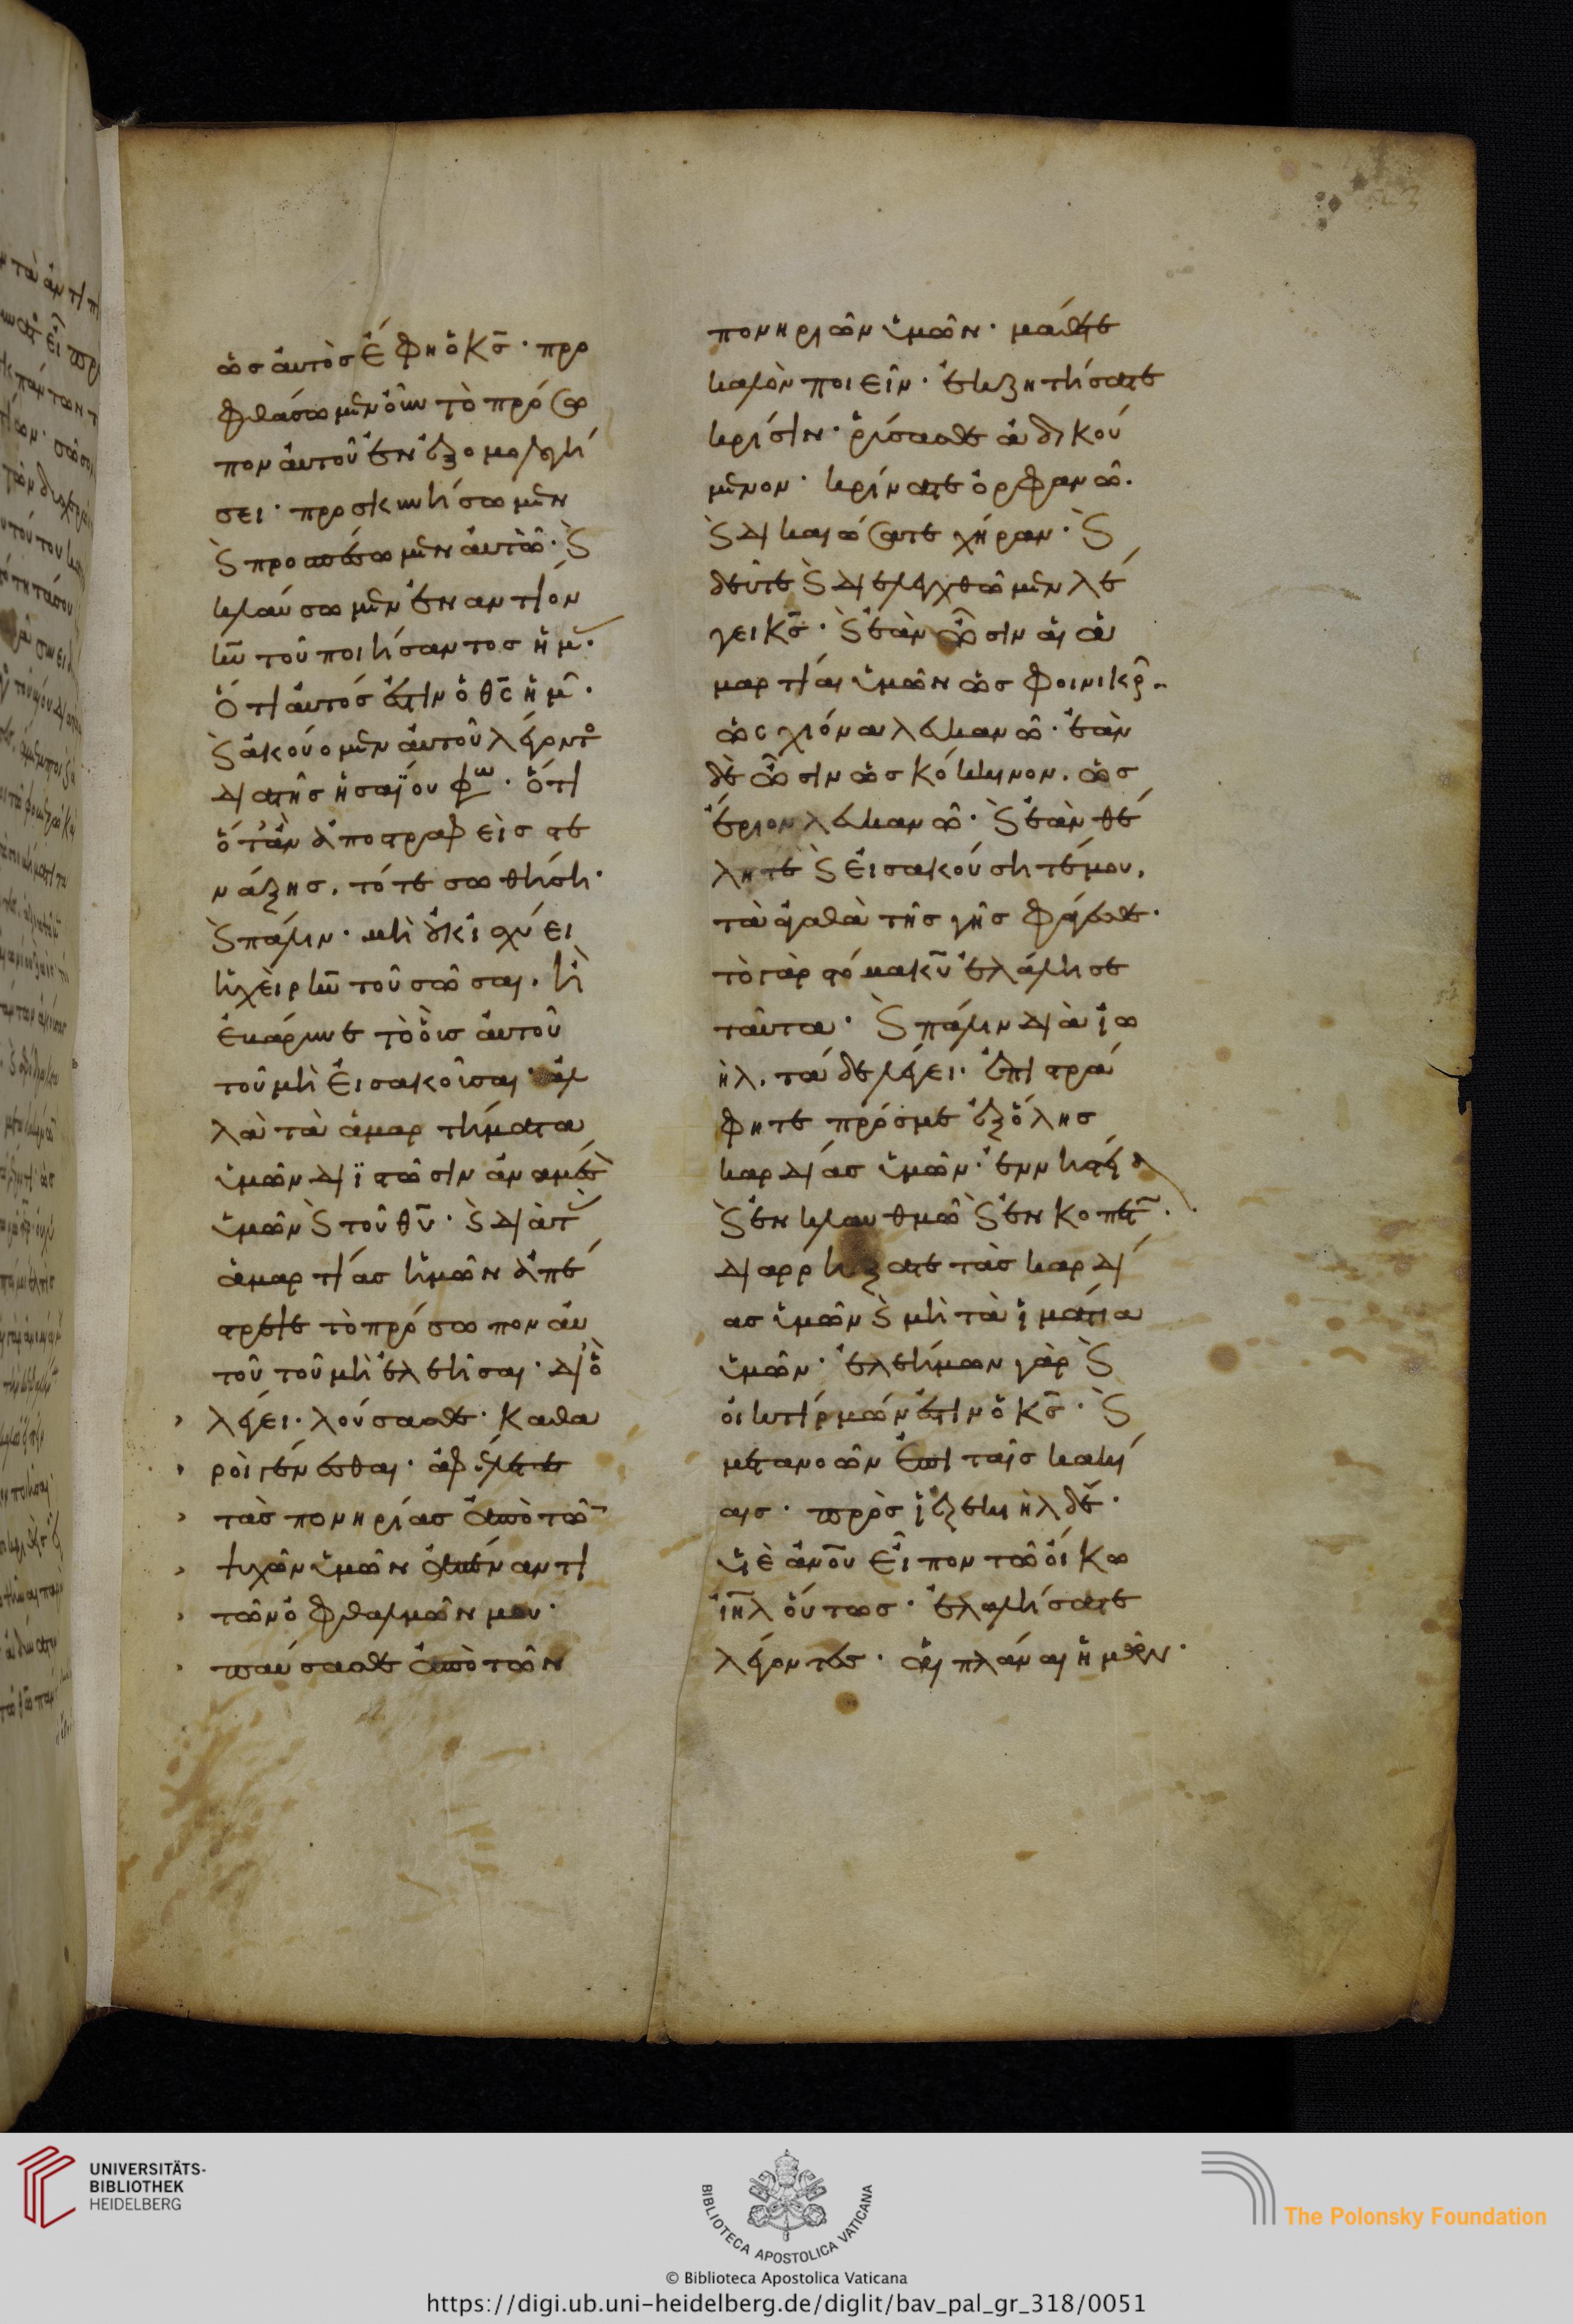 ὡσ ἀυτὸσ ἔφη ὁ κ̅σ̅· προ
φθάσωμεν ὀῦν τὸ πρόσω
πον ἀυτοῦ ἐν ἐξομολογή
σει· προσκυνήσωμεν
καὶ προσπέσωμεν ἀυτῶ· καὶ
κλαύσωμεν ἐναντίον
κ̅υ̅ τοῦ ποιήσαντοσ ἡμᾶσ·
ὅτι ἀυτόσ ἐστιν ὁ θ̅ς̅ ἡμῶν·
καὶ ἀκούομεν ἀυτοῦ λέγοντος
διὰ τῆσ ἡσαΐου φω· ὅτι
ὅταν ἀποστραφεὶσ στε
νάξησ, τότε σωθήση·
καὶ πάλιν· μὴ οὐκ ἰσχύει
ἡ χεὶρ κ̅υ̅ τοῦ σῶσαι· ἢ
ἐβάρυνε τὸ ὀῦσ ἀυτοῦ
τοῦ μὴ ἐισακοῦσαι· ἀλ
λὰ τὰ ἁμαρτήματα
ὑμῶν διϊστῶσιν ἀναμέσον
ὑμῶν καὶ τοῦ θ̅υ̅· καὶ διὰ τὰς
ἁμαρτίασ ἡμῶν ἀπέ
στρεψε τὸ πρόσωπον ἀυ
τοῦ τοῦ μὴ ἐλεῆσαι· διὸ
λέγει· λούσασθε· καθα
ροὶ γένεσθαι· ἀφέλετε
τὰσ πονηρίασ ἀπὸ τῶν
ψυχῶν ὑμῶν ἀπέναντι
τῶν ὀφθαλμῶν μου·
παύσασθε ἀπὸ τῶν
πονηριῶν ὑμῶν· μάθετε
καλὸν ποιεῖν· ἐκζητήσατε
κρίσιν· ῥύσασθε ἀδικού
μενον· κρίνατε ὀρφανῶ·
καὶ δικαιώσατε χήραν· καὶ
δεῦτε καὶ διελεγχθῶμεν λέ
γει κ̅ς̅· καὶ ἐὰν ὦσιν ἁι ἁ
μαρτίαι ὑμῶν ὡσ φοινικοῦν
ὡς χιόνα λευκανῶ· ἐὰν
δὲ ὦσιν ὡσ κόκκινον, ὡσ
ἔριον λευκανῶ· καὶ ἐὰν θέ
λητε καὶ ἐισακούσητέ μου,
τὰ ἀγαθὰ τῆσ γῆσ φάγεσθε·
τὸ γὰρ στόμα κ̅υ̅ ἐλάλησε
ταῦτα· καὶ πάλιν διὰ ἰω
ὴλ, τάδε λέγει· ἐπιστρά
φητε πρόσ με ἐξ ὅλησ
καρδίασ ὑμῶν· ἐν νηστείᾳ
καὶ ἐν κλαυθμῶ καὶ ἐν κοπετῶ·
διαρρήξατε τὰσ καρδί
ασ ὑμῶν καὶ μὴ τὰ ἱμάτια
ὑμῶν· ἐλεήμων γὰρ καὶ
ὀικτίρμων ἐστιν ὁ κ̅σ̅· καὶ
μετανοῶν ἐπὶ ταῖσ κακί
αισ· πρὸσ ἰεζεκιὴλ δέ·
ὑιὲ ἀνο̅υ̅ ἐῖπον τῶ ὀίκω
ι̅η̅λ̅ ὅυτωσ· ἐλαλήσατε
λέγοντεσ· ἁι πλάναι ἡμῶν·
© Biblioteca Apostolica Vaticana
https://digi.ub.uni-heidelberg.de/diglit/bav_pal_gr_318/0051
UNIVERSITÄTS-
BIBLIOTHEK
HEIDELBERG
BIBLIOTECA APOSTOLICA VATICANA
The Polonsky Foundation